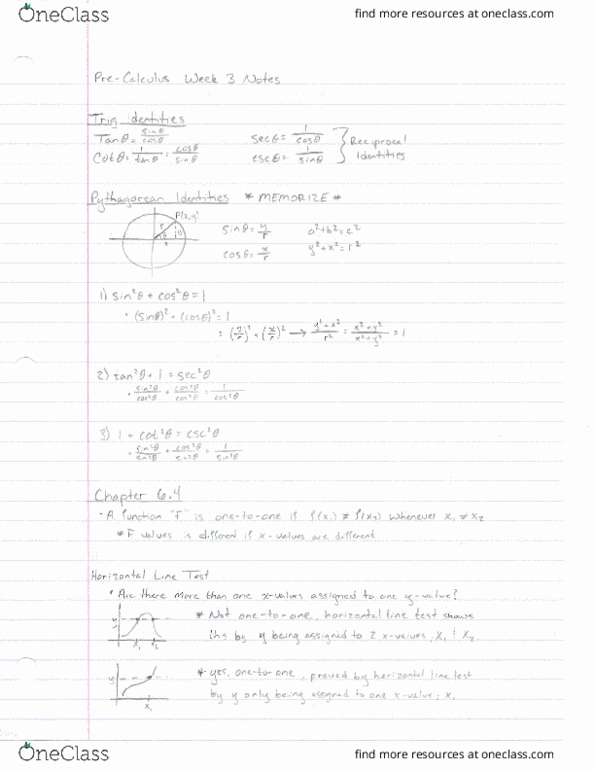 OneClass
find more resources at oneclass.com
Pre-Calculus Week 3 Notes
Trig Identities
Tanθ = sinθ/cosθ   secθ = 1/cosθ
Cotθ = 1/tanθ = cosθ/sinθ   cscθ = 1/sinθ
} Reciprocal Identities
Pythagorean Identities * MEMORIZE *
P(x,y)
r y
θ
x
sinθ = y/r   a²+b²=c²
cosθ = x/r   y²+x²=r²
1) sin²θ + cos²θ = 1
• (sinθ)² + (cosθ)² = 1
= (y/r)² + (x/r)² → y²+x²/r² = x²+y²/x²+y² = 1
2) tan²θ + 1 = sec²θ
• sin²θ/cos²θ + cos²θ/cos²θ = 1/cos²θ
3) 1 + cot²θ = csc²θ
• sin²θ/sin²θ + cos²θ/sin²θ = 1/sin²θ
Chapter 6.4
• A function "F" is one-to-one if f(x₁) ≠ f(x₂) whenever x₁ ≠ x₂
* F values is different if x-values are different
Horizontal Line Test
• Are there more than one x-values assigned to one y-value?
y x₁ x₂
* Not one-to-one, horizontal line test shows
this by y being assigned to 2 x-values, x₁ ! x₂
y x₁
* yes, one-to-one, proved by horizontal line test
by y only being assigned to one x-value; x₁
OneClass
find more resources at oneclass.com